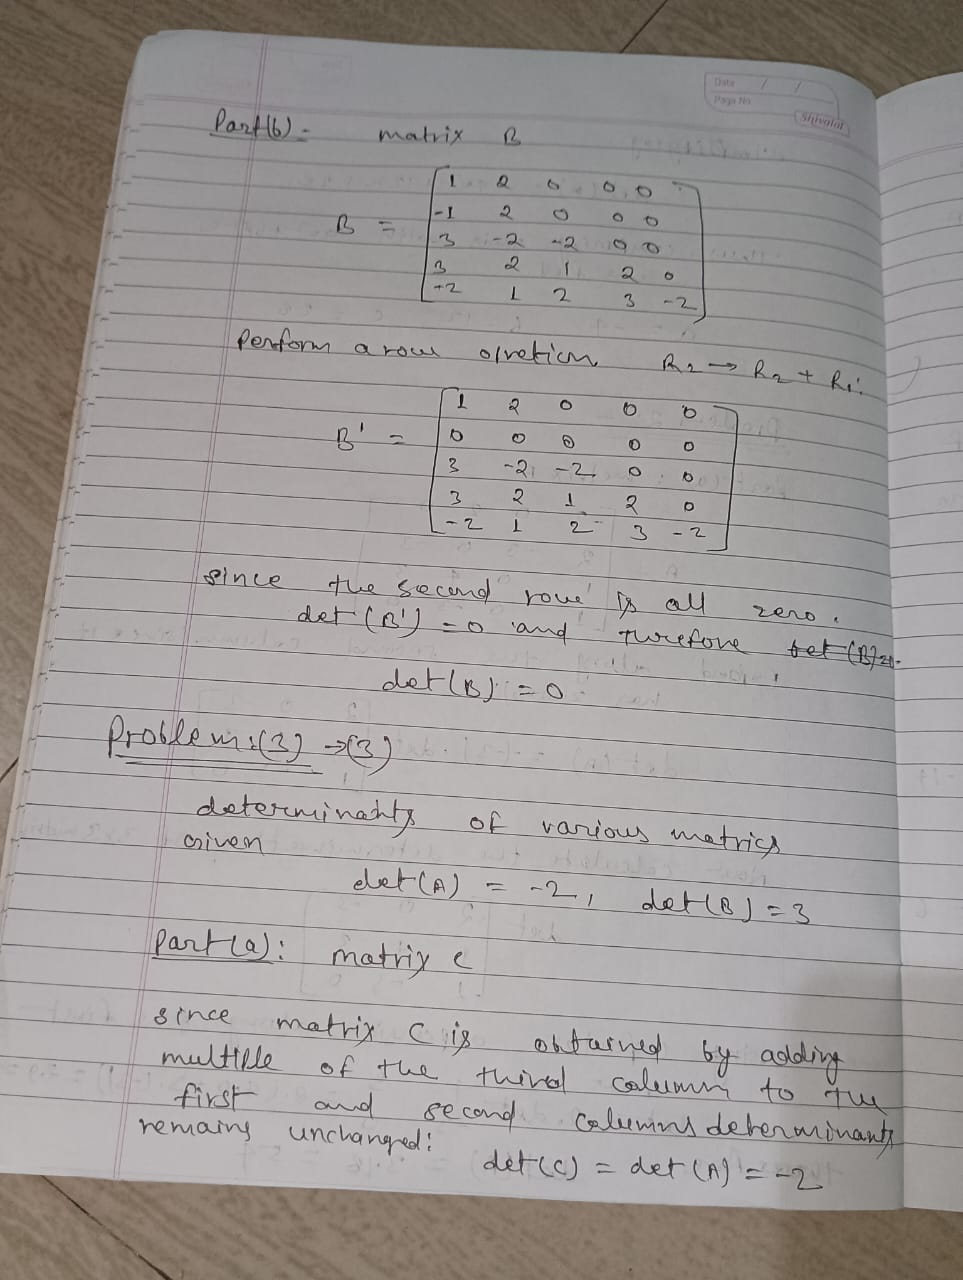 Date / /
Page No
Shivalal
Part(b) - matrix B
B = [ 1 2 0 0 0
-1 2 0 0 0
3 -2 -2 0 0
3 2 1 2 0
-2 1 2 3 -2 ]
Perform a row R2 → R2 + R1:
B' = [ 1 2 0 0 0
0 0 0 0 0
3 -2 -2 0 0
3 2 1 2 0
-2 1 2 3 -2 ]
since the second row is all zero.
det (B') = 0 and
det (B) = 0
Problem:(3) →(3)
determinants of various matrics
given
det(A) = -2, det(B) = 3
Part(a): matrix C
since matrix C is obtained by adding
multiple of the third column to the
first and second columns determinants
remains unchanged:
det(C) = det(A) = -2